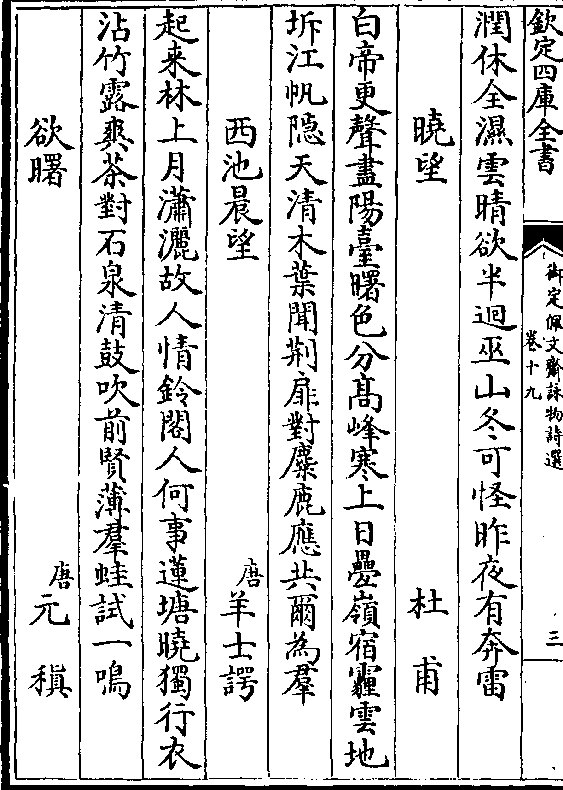 欽定四庫全書
御定佩文齋詠物詩選
卷十九
三
潤休全濕雲晴欲半迴巫山冬可怪昨夜有奔雷
曉望
杜甫
白帝更聲盡陽臺曙色分髙峰寒上日疊嶺宿霾雲地
坼江帆隱天清木葉聞荆扉對麋鹿應共爾為羣
西池晨望
唐羊士諤
起来林上月瀟灑故人情鈴閣人何事蓮塘曉獨行衣
沾竹露爽茶對石泉清鼓吹前賢薄羣蛙試一鳴
欲曙
唐元稹